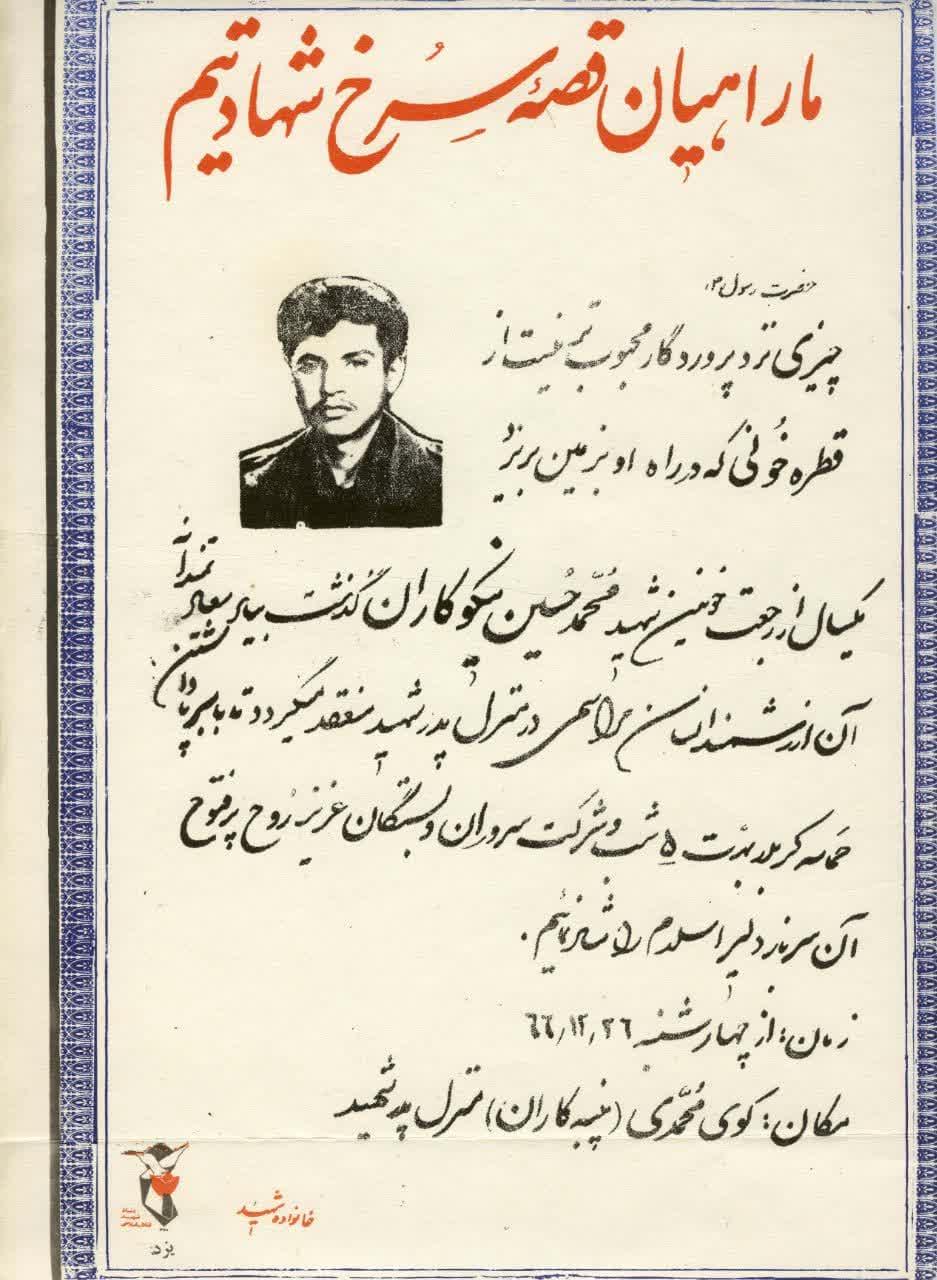 ما راهیان قصهٔ سرخ شهادتیم
حضرت رسول ص:
چیزی نزد پروردگار محبوب تر نیست از
قطره خونی که در راه او بر زمین بریزد
یکسال از رجعت خونین شهید محمد حسین نیکوکاران گذشت بیاد
آن ارزشمند انسان مراسمی در منزل پدر شهید منعقد میگردد تا با برپا داشتن
حماسه کربلا بمدت ۵ شب و شرکت سروران و بستگان عزیز روح پرفتوح
آن سرباز دلیر اسلام را شاد نمائیم.
زمان: از چهارشنبه ۶۶/۱۲/۲۶
مکان: کوی محمّدی (پنبه کاران) منزل پدر شهید
خانواده شهید
بنیاد شهید انقلاب اسلامی
یزد